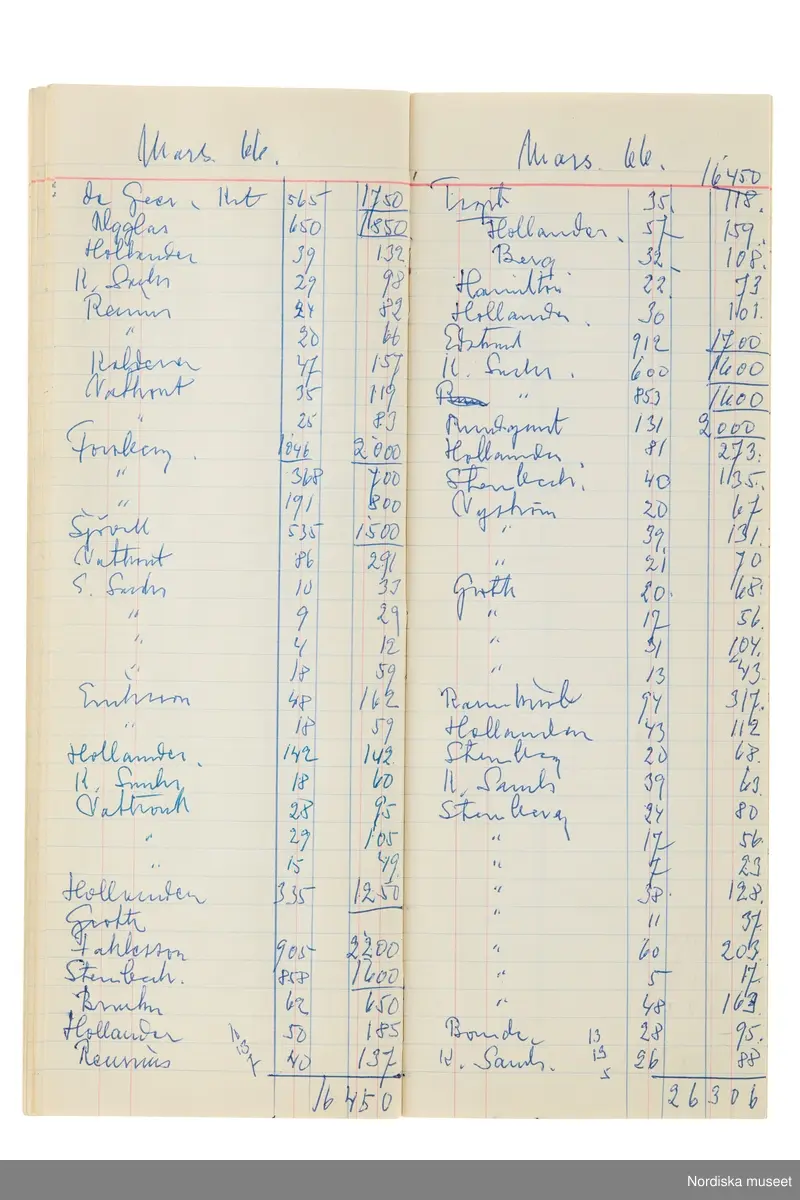 Mars. 66.
de Geer. Krt 565 1750
Ugglas 650 1850
Hollander 39 132
K. Sachs 29 98
Renius 24 82
" 20 66
47 157
Vathout 35 119
" 25 83
1046 2000
" 368 700
" 191 800
Sjövall 535 1500
Vathout 86 291
S. Sachs 10 33
" 9 29
" 4 12
" 18 59
Eriksson 48 162
" 18 59
Hollander. 142 142
K. Sachs 18 60
Vathout 28 95
" 29 105
" 15 49
Hollander 335 1250
Groth
Fahlesson 905 2200
Stenbeck. 858 1600
Bruhn 62 650
Hollander 50 185
Rennius 40 137
16450
Mars. 66.
16450
35. 118.
Hollander. 57 159.
Berg 32 108.
Hamilton 22 73
Hollander. 30 101.
Edstrand 912 1700
K. Sachs. 600 1600
" 853 1600
Rundquist 131 2000
Hollander 81 273.
Stenbeck. 40 135.
Nyström 20 67
" 39 131.
" 21 70
Groth 20. 68.
" 17 56.
" 31 104.
" 13 43.
94 317.
Hollander 43 112
Stenberg 20 68.
K. Sachs 39 63.
Stenberg 24 80
" 17 56.
" 7 23
" 38. 128.
" 11 37.
" 60 203.
" 5 17.
" 48 163.
Bonde. 13 28 95.
K. Sachs. 13 26 88
5
26306
Nordiska museet